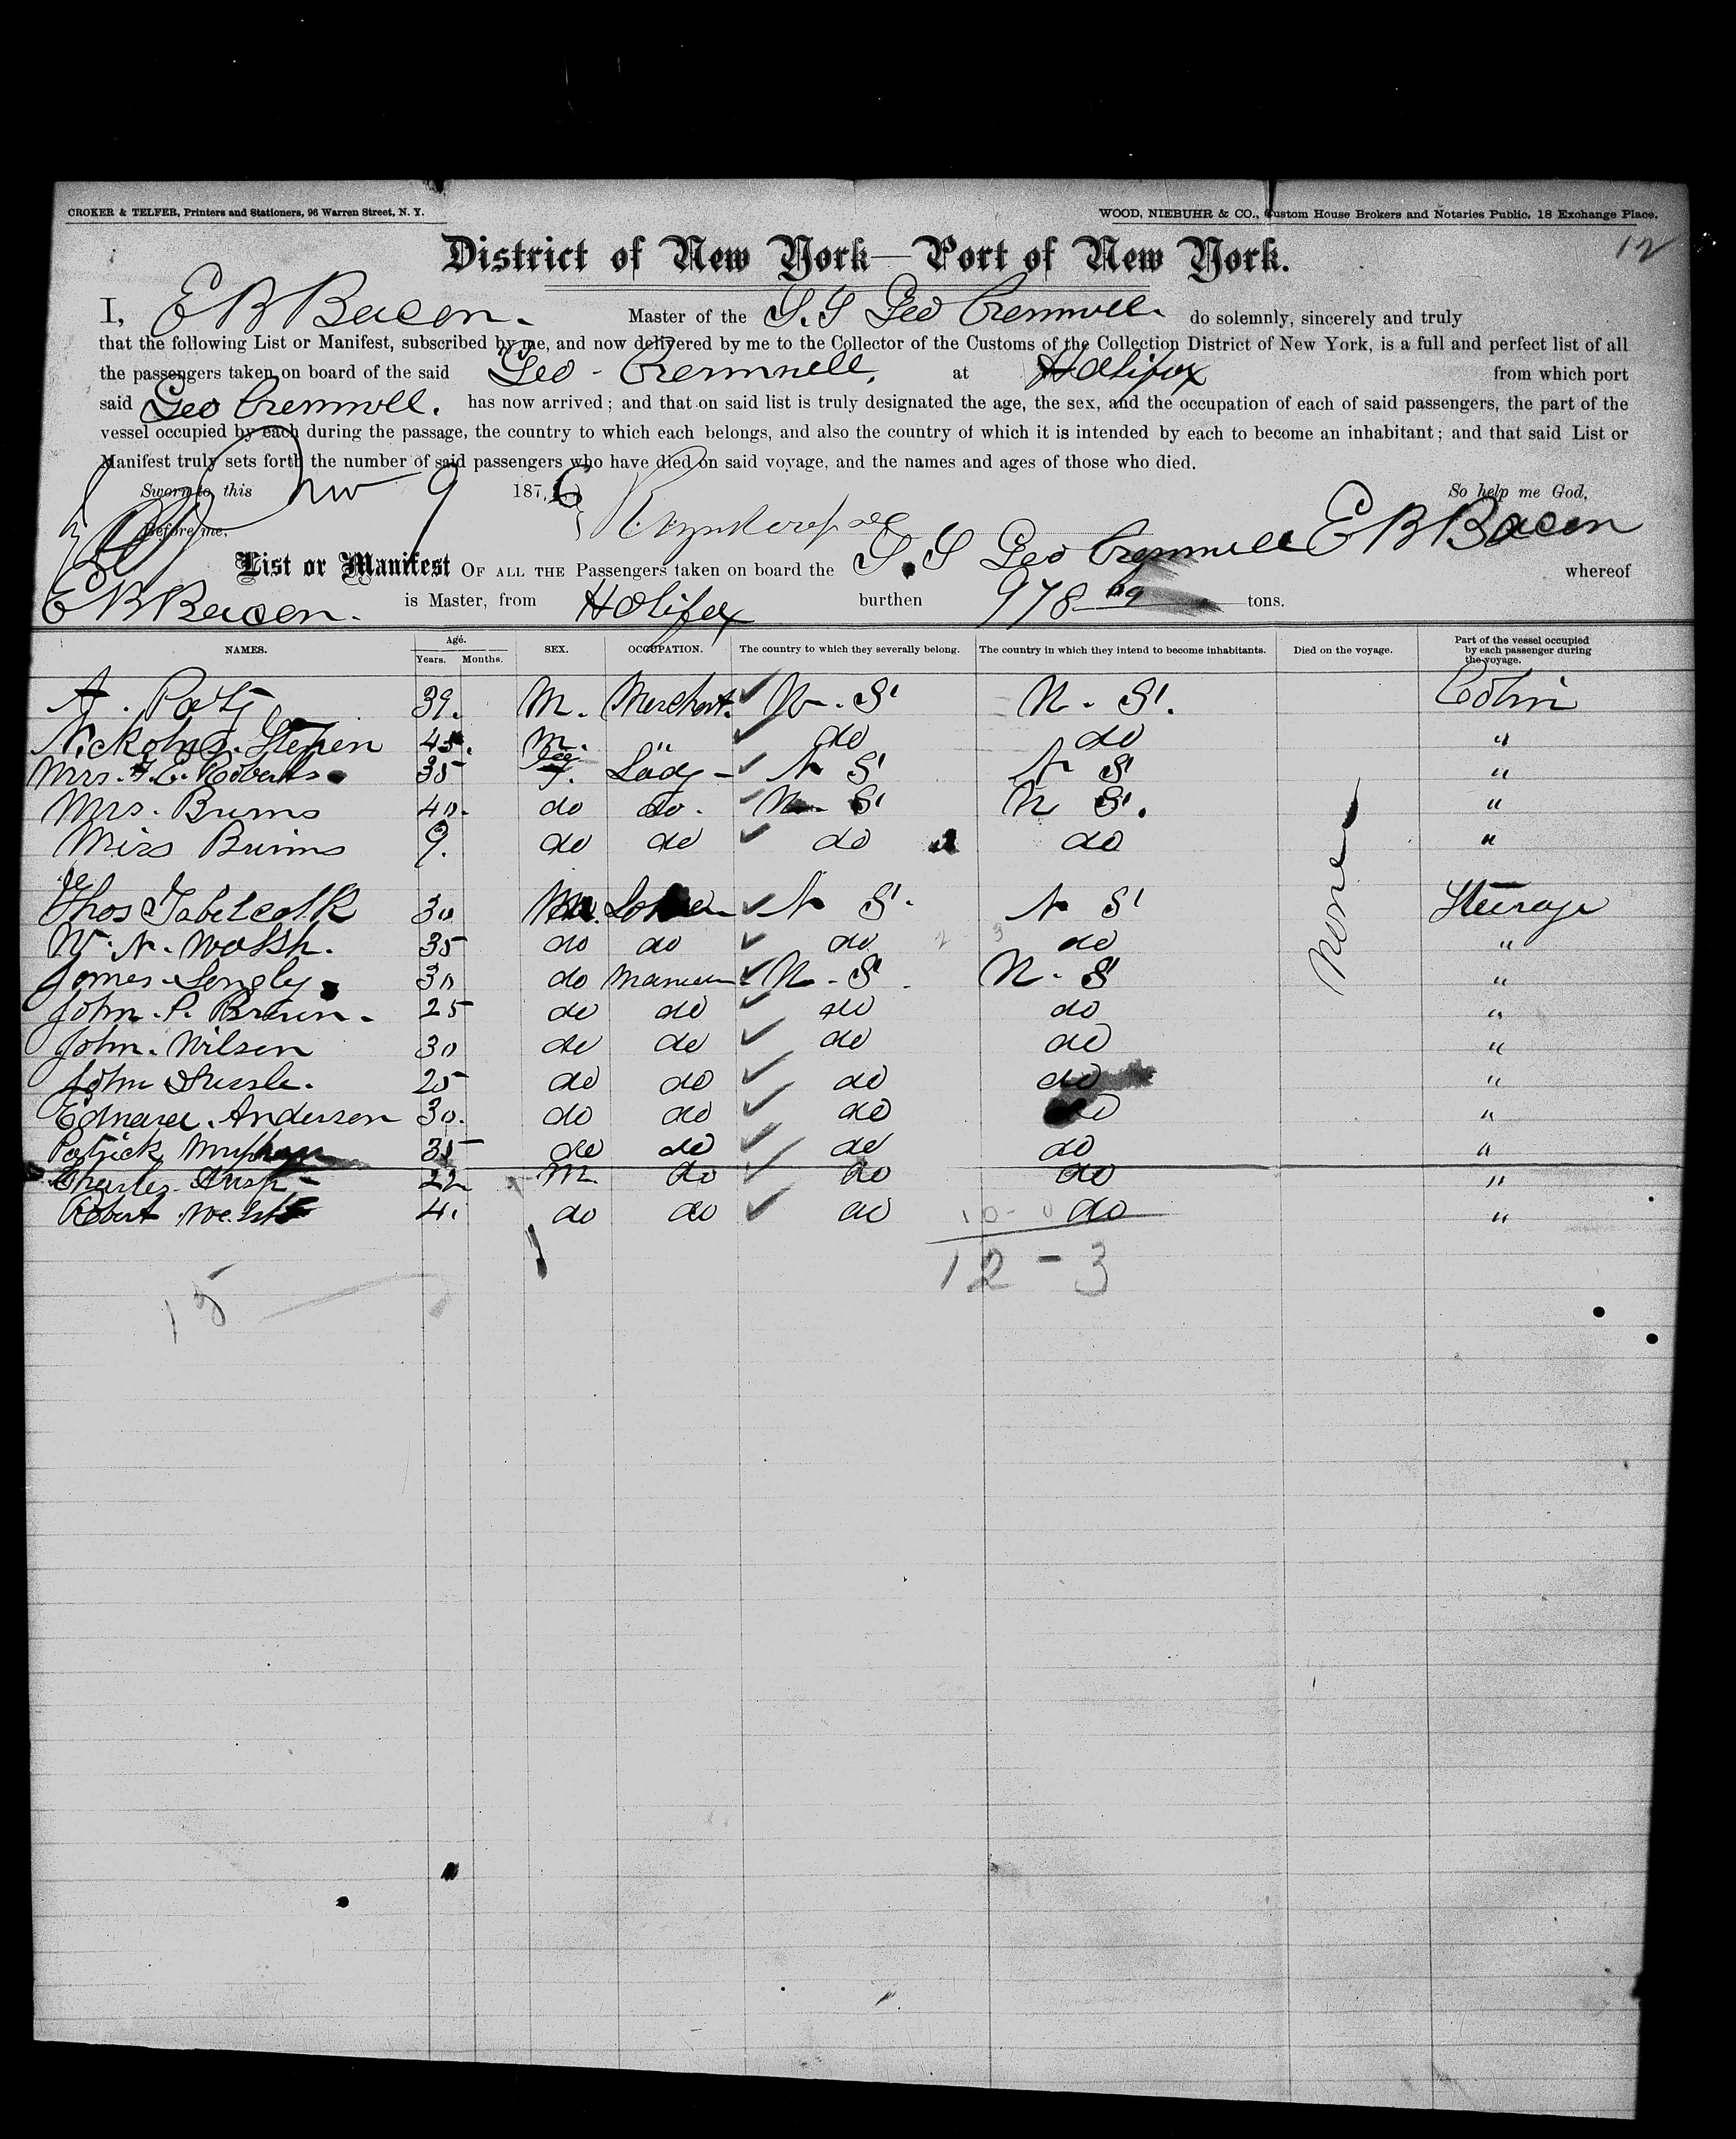 CROKER & TELFER, Printers and Stationers, 96 Warren Street, N. Y. WOOD, NIEBUHR & CO., Custom House Brokers and Notaries Public, 18 Exchange Place.
12
District of New York—Port of New York.
I, E B Bacon. Master of the S.S Geo Cromwell. do solemnly, sincerely and truly
that the following List or Manifest, subscribed by me, and now delivered by me to the Collector of the Customs of the Collection District of New York, is a full and perfect list of all
the passengers taken on board of the said Geo - Cromwell, at Halifax from which port
said Geo Cromwell. has now arrived; and that on said list is truly designated the age, the sex, and the occupation of each of said passengers, the part of the
vessel occupied by each during the passage, the country to which each belongs, and also the country of which it is intended by each to become an inhabitant; and that said List or
Manifest truly sets forth the number of said passengers who have died on said voyage, and the names and ages of those who died.
Sworn to this Nov 9 1876 So help me God,
Before me, E B Bacon
List or Manifest OF ALL THE Passengers taken on board the S.S Geo Cromwell whereof
E B Bacon. is Master, from Halifax burthen 978 tons.
NAMES. Age. Years. Months. SEX. OCCUPATION. The country to which they severally belong. The country in which they intend to become inhabitants. Died on the voyage. Part of the vessel occupied by each passenger during the voyage.
A. 39. M. Merchant. N. S. N. S. Cabin
Nickolas. Stephen 45. M. " do do "
Mrs. Roberts 35 f. Lady N S N S "
Mrs. Burns 40. do do. N. S N S. "
Miss Burns 9. do do do do "
Thos 30 M. N S. N S Steerage
W. N. Walsh. 35 do do do do "
James. Longley. 30 do N. S N. S "
John. P. Brown. 25 do do do do "
John. Wilson 30 do do do do "
John 25 do do do do "
Edward. Anderson 30. do do do do "
Patrick 35 do do do do "
Charles 22 M. do do do "
Robert 4. do do do do "
none
12 - 3
15